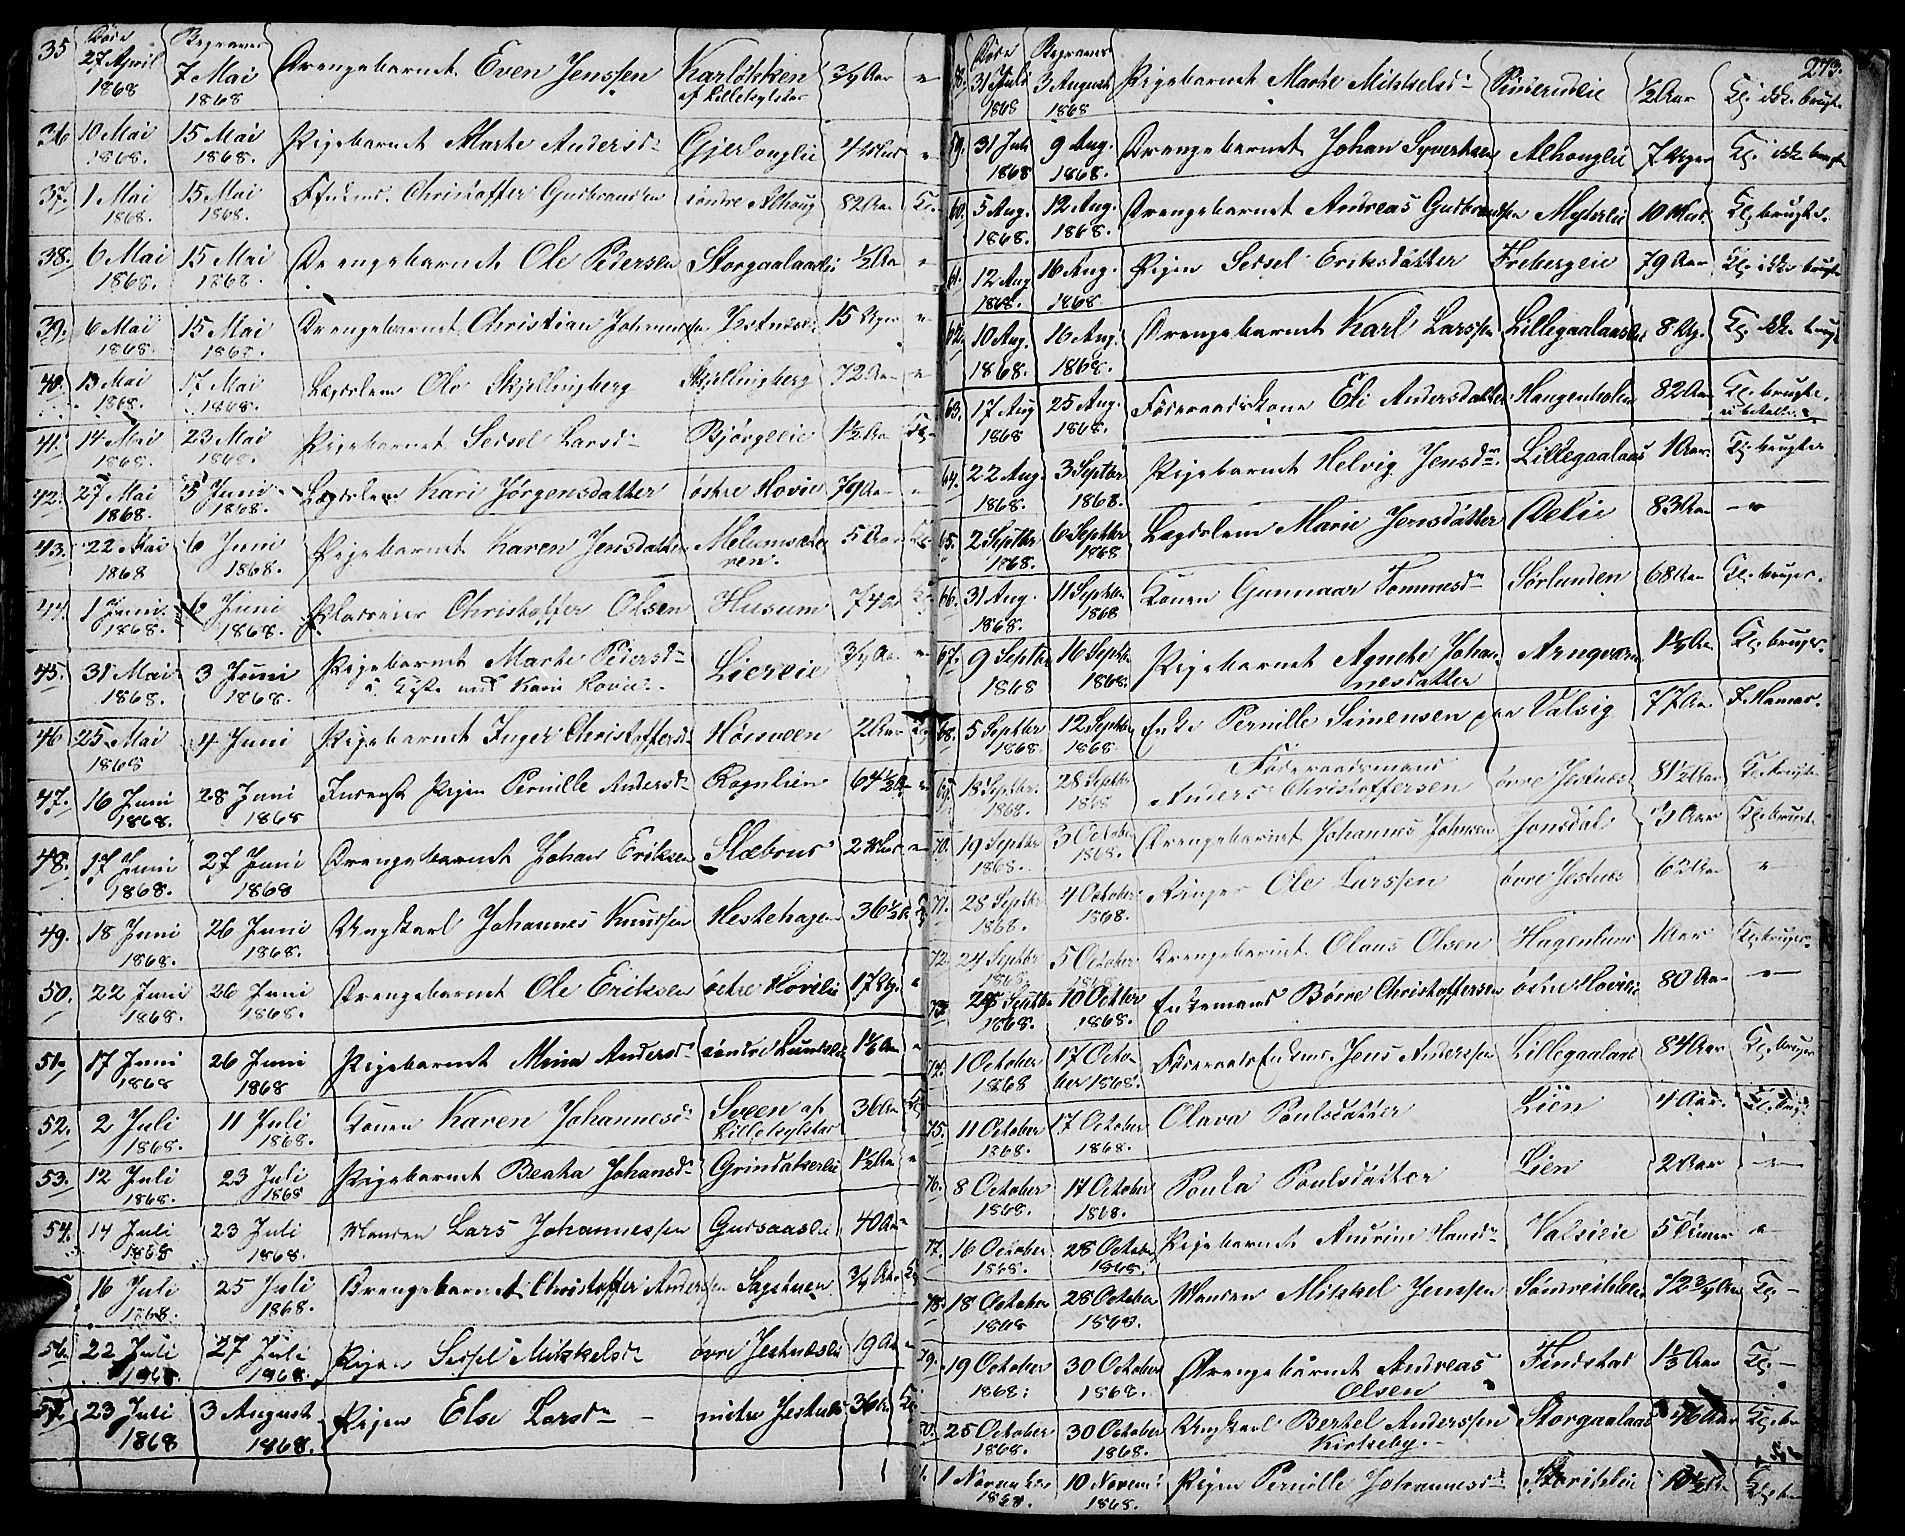 35 Døde Begravne
27 April 1868 7 Mai 1868 Drengebarnet Even Jenssen Karløkken af Lillekylstad 3/4 Aar "
36 10 Mai 1868. 15 Mai 1868. Pigebarnet Marte Andersd. Gjerlouglie 4
37. 1 Mai 1868. 15 Mai 1868. Christoffer Gudbrandsen søndre Alhoug 82 Aar Kl.
38. 6 Mai 1868. 15 Mai 1868. Drengebarnet Ole Pedersen Storgaalaaslie 1/2 Aar "
39. 6 Mai 1868. 15 Mai 1868. Drengebarnet Christian Johannesen 15 Uger "
40. 13 Mai 1868. 17 Mai 1868. Lægdslem Ole Skjellingberg Skjellingberg 72 Aar "
41. 14 Mai 1868. 23 Mai 1868. Pigebarnet Sedsel Larsd. Bjørgeeie 1 1/2 Aar
42. 27 Mai 1868. 5 Juni 1868. Lægdslem Kari Jørgensdatter østre Hovie 79 Aar "
43. 22 Mai 1868 6 Juni 1868. Pigebarnet Karen Jensdatter 5 Aar
44. 1 Juni 1868. 6 Juni 1868. Pladseier Christoffer Olsen Husum 74 Aar
45. 31 Mai 1868. 3 Juni 1868. Pigebarnet Marte Pedersd. Liereie 3/4 Aar "
46 25 Mai 1868 4 Juni Pigebarnet Inger Christoffersd. Høisveen 2 Aar
47. 16 Juni 1868. 28 Juni 1868 Pigen Pernille Andersd. Rognlien 64 1/2 Aar
48. 17 Juni 1868. 27 Juni 1868 Drengebarnet Johan Eriksen Slæbrus 2
49. 18 Juni 1868. 26 Juni 1868. Ungkarl Johannes Knudsen Hestehagen 36 1/2 Aar
50. 22 Juni 1868. 26 Juni 1868. Drengebarnet Ole Eriksen østre Hovilie 17 Ug. "
51. 17 Juni 1868 26 Juni 1868 Pigebarnet Mina Andersd. søndre 1 1/2 Aar "
52. 2 Juli 1868. 11 Juli 1868. Konen Karen Johannesd. Sveen af Lillekylstad 36 Aar
53. 12 Juli 1868. 23 Juli 1868 Pigebarnet Beata Johansd. Grindakerlie 1 1/2 Aar "
54. 14 Juli 1868 23 Juli 1868. Manden Lars Johannessen Gudsaaslie 40 Aar
16 Juli 1868. 25 Juli 1868. Drengebarnet Christoffer Andersen Sagstuen 3/4 Aar
56. 22 Juli 1968 27 Juli 1968. Pigen Sedsel Mikkelsd. øvre Jestnæslie 19 Aar
57. 23 Juli 1868 3 August 1868. Pigen Else Larsd. – midtre Jestnæs 36 Aar
273.
Døde Begravne
58. 31 Juli 1868 3 August 1868 Pigebarnet Marte Mikkelsd. 1/2 Aar Kl. ikke brugt.
59. 31 Juli 1868 9 Aug. 1868. Drengebarnet Johan Syvertsen Alhouglie 7 Uger Kl. ikke brugt
60. 5 Aug. 1868. 12 Aug. 1868. Drengebarnet Andreas Gudbrandsen Myhrlie 10 Kl. brugte.
61. 12 Aug 1868. 16 Aug. 1868 Pigen Sedsel Eriksdatter Frebergeie 79 Aar Kl. ikke brugt
62. 10 Aug. 1868. 16 Aug. 1868. Drengebarnet Karl Larssen Lillegaalaaslie 8 Ug. Kl. ikke brugt
63. 17 Aug 1868 25 Aug. 1868. Føderaadskone Eli Andersdatter Haugenholen 82 Aar Kl. brugte.
64. 22 Aug. 1868. 3 Septbr 1868. Pigebarnet Helvig Jensd. Lillegaalaas 1 Aar Kl. brugtes
65. 2 Septbr 1868. 6 Septbr 1868 Lægdslem Marie Jensdatter 83 Aar – "
66. 31 Aug. 1868. 11 Septbr 1868 Konen Gunnaar Tommesd. Sørlunden 68 Aar Kl. bruges.
67. 9 Septbr 1868 16 Septbr 1868. Pigebarnet Agnete Johannesdatter 1 1/2 Aar Kl. bruges.
68. 5 Septbr 1868. 12 Septbr 1868. Enke Pernille Simensen paa Valsig 77 Aar F. Hamar.
69. 18 Septbr. 1868. 28 Septbr 1868 Føderaadsmand Anders Christoffersen øvre Jestnæs 81 1/2 Aar Kl. brugte
70. 19 Septbr 1868. 3 October 1868. Drengebarnet Johannes Johnsen Jonsdal 3 Aar Kl. brugt
71. 28 Septbr 1868. 4 October 1868. Ole Larssen øvre Jestnæs "
72. 24 Septbr 1868. 5 October 1868. Drengebarnet Olaus Olsen Hagenlund 1 Aar Kl. bruges
73. 1868. 10 Octber 1868. Enkemand Børre Christoffersen østre Hovilie 80 Aar – " –
74. 1 October 1868 17 October 1868. Jens Anderssen Lillegaalaas 84 Aar Kl. bruges
75. 11 October 1868. 17 October 1868. Olava Poulsdatter Lien 4 Aar.
76. 8 October 1868. 17 October 1868. Poula Poulsdatter Lien 2 Aar – " –
77. 16 October. 1868. 28 October 1868. Pigebarnet Andrine Hansd. Valsieie 5 Timer "
78. 18 October 1868 28 October 1868. Manden Mikkel Jenssen 72 3/4 Aar Kl. –
79. 19 October 1868. 30 October 1868. Drengebarnet Andreas Olsen Findstad 1 1/3 Aar Kl. –
80. 25 October 1868. 30 October 1868. Ungkarl Bertel Anderssen Kirkeby. – Storgaalaas 46 Aar
1 November 1868. 10 November 1868. Pigen Pernille Johannesd. 10 1/2 Aar